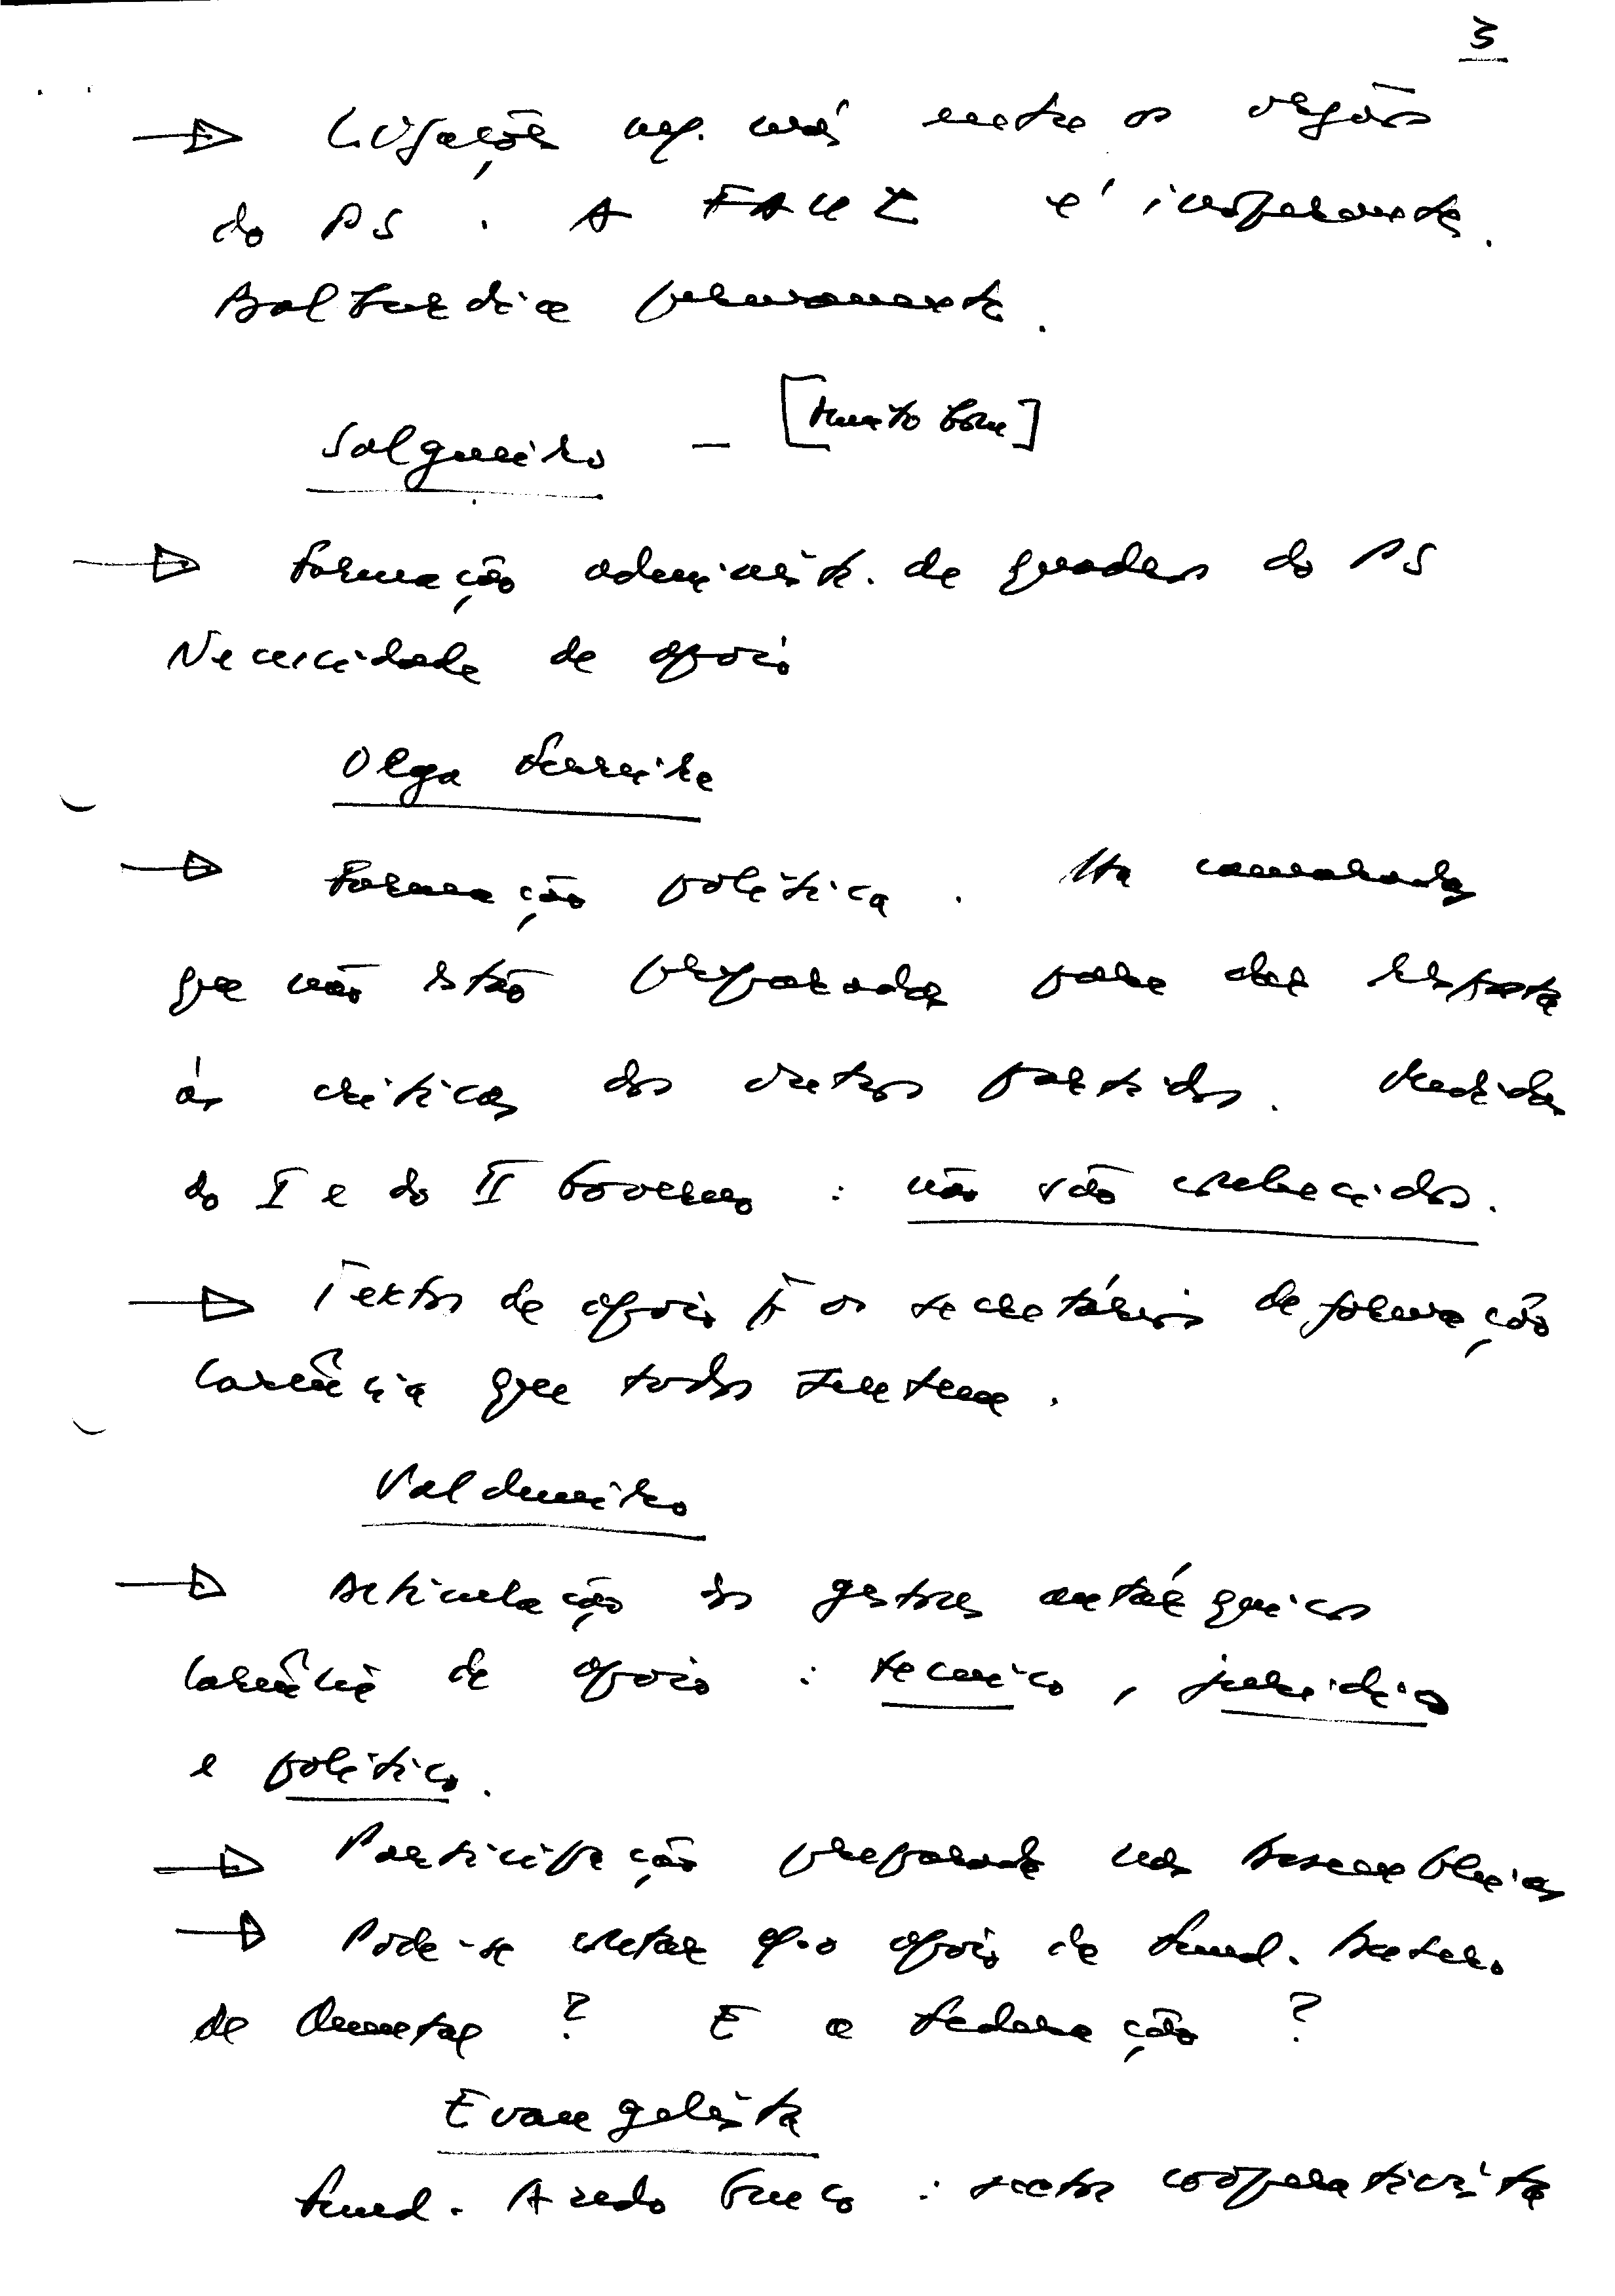 3
→ Ligações mp. más entre os orgãos
do PS. A FAUL é inoperante.
Balbúrdia permanente.
Salgueiro – [muito bom]
→ Formação administ. de quadros do PS
Necessidade de apoio
Olga
→ Formação política. Há camaradas
que não estão preparados para dar resposta
ás críticas dos outros partidos. Medidas
do I e do II Governo : não são conhecidos.
→ Textos de apoio p/ os secretários de formação
Carência que todos sentem.
Valdmiro
→ Articulação dos gestores autárquicos
Carência de apoio : tecnico, juridico
e politico.
→ Participação preparada nas Assembleias
→ Pode-se contar c/ o apoio de Fund. Antero
de Quental ? E a Federação ?
Evangelista
Fund. Azedo Gneco : sector cooperativista